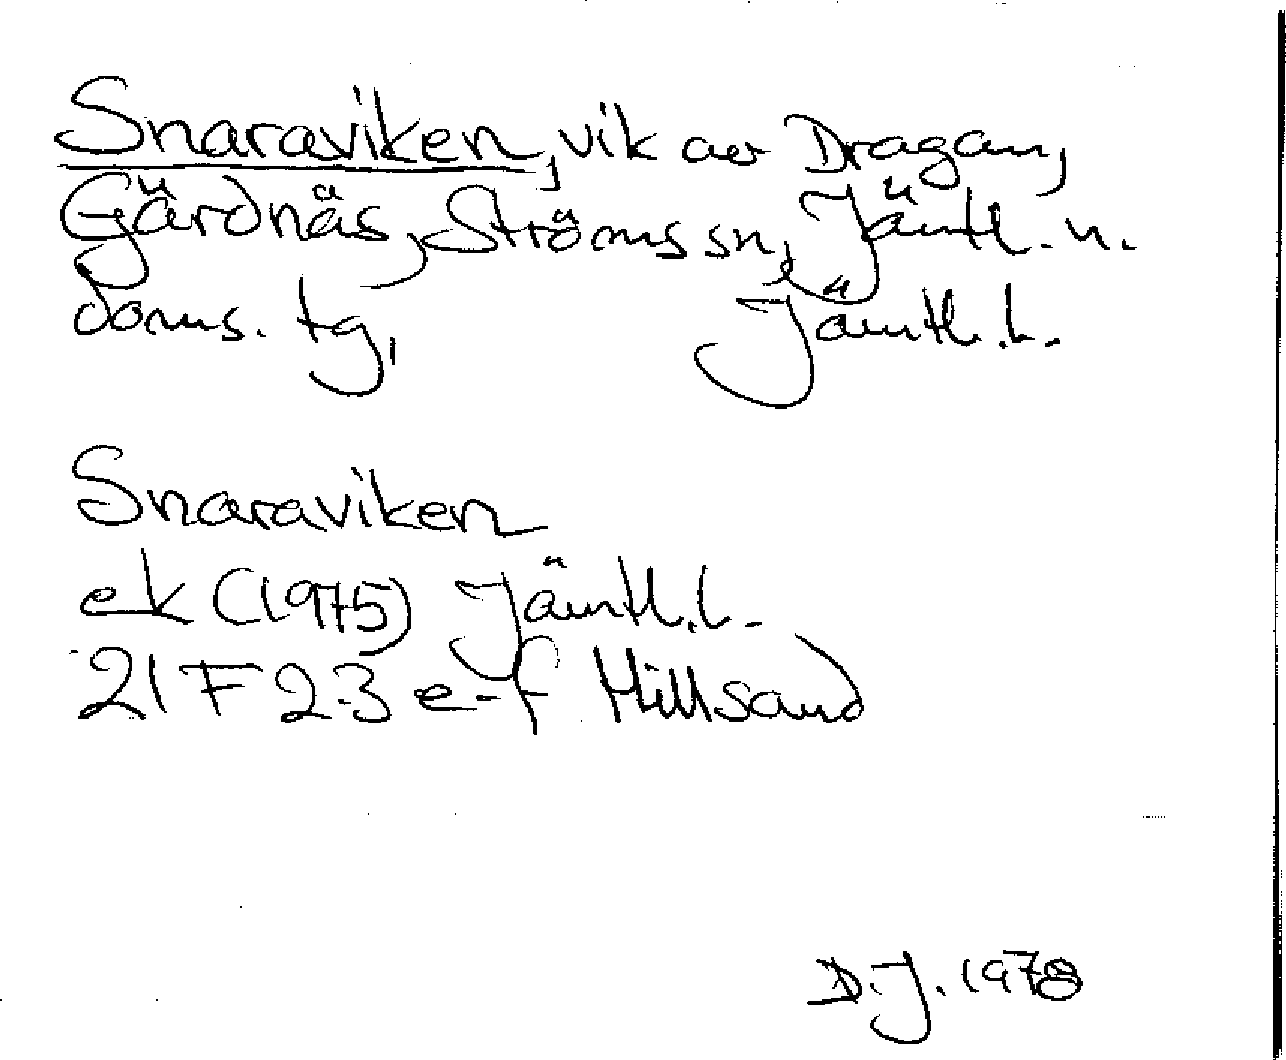 Snaraviken, vik av Dragan,
Gärdnäs, Ströms sn, Jämtl. n.
doms. tg, Jämtl. l.
Snaraviken
ek (1975) Jämtl. l.
21 F 2-3 e-f Hillsand
D.J. 1978